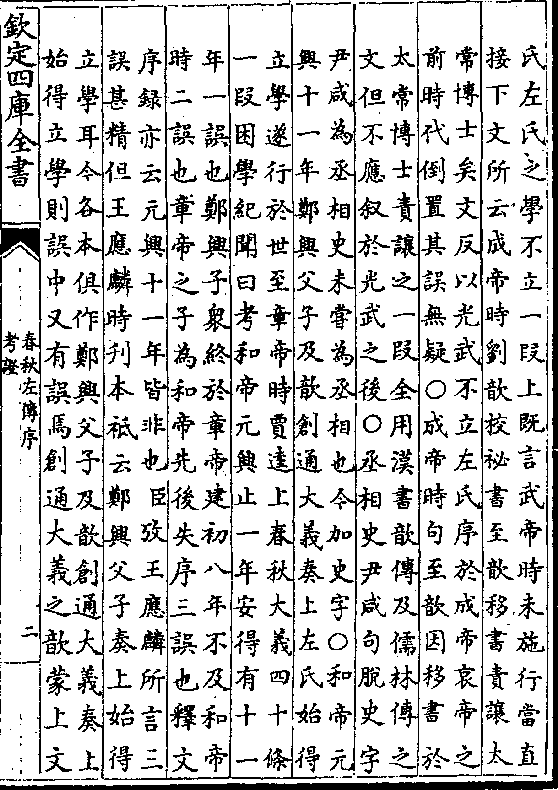 氏左氏之學不立一段上既言武帝時未施行當直
接下文所云成帝時劉歆挍秘書至歆移書責讓太
常博士矣文反以光武不立左氏序於成帝哀帝之
前時代倒置其誤無疑○成帝時句至歆因移書於
太常博士責讓之一段全用漢書歆傳及儒林傳之
文但不應叙於光武之後○丞相史尹咸句脱史字
尹咸為丞相史未嘗為丞相也今加史字○和帝元
興十一年鄭興父子及歆創通大義奏上左氏始得
立學遂行於世至章帝時賈逵上春秋大義四十條
一段困學紀聞曰考和帝元興止一年安得有十一
年一誤也鄭興子衆終於章帝建初八年不及和帝
時二誤也章帝之子為和帝先後失序三誤也釋文
序録亦云元興十一年皆非也臣攷王應麟所言三
誤甚精但王應麟時刋本祗云鄭興父子奏上始得
立學耳今各本俱作鄭興父子及歆創通大義奏上
始得立學則誤中又有誤焉創通大義之歆蒙上文
欽定四庫全書
春秋左傳序
考證
二